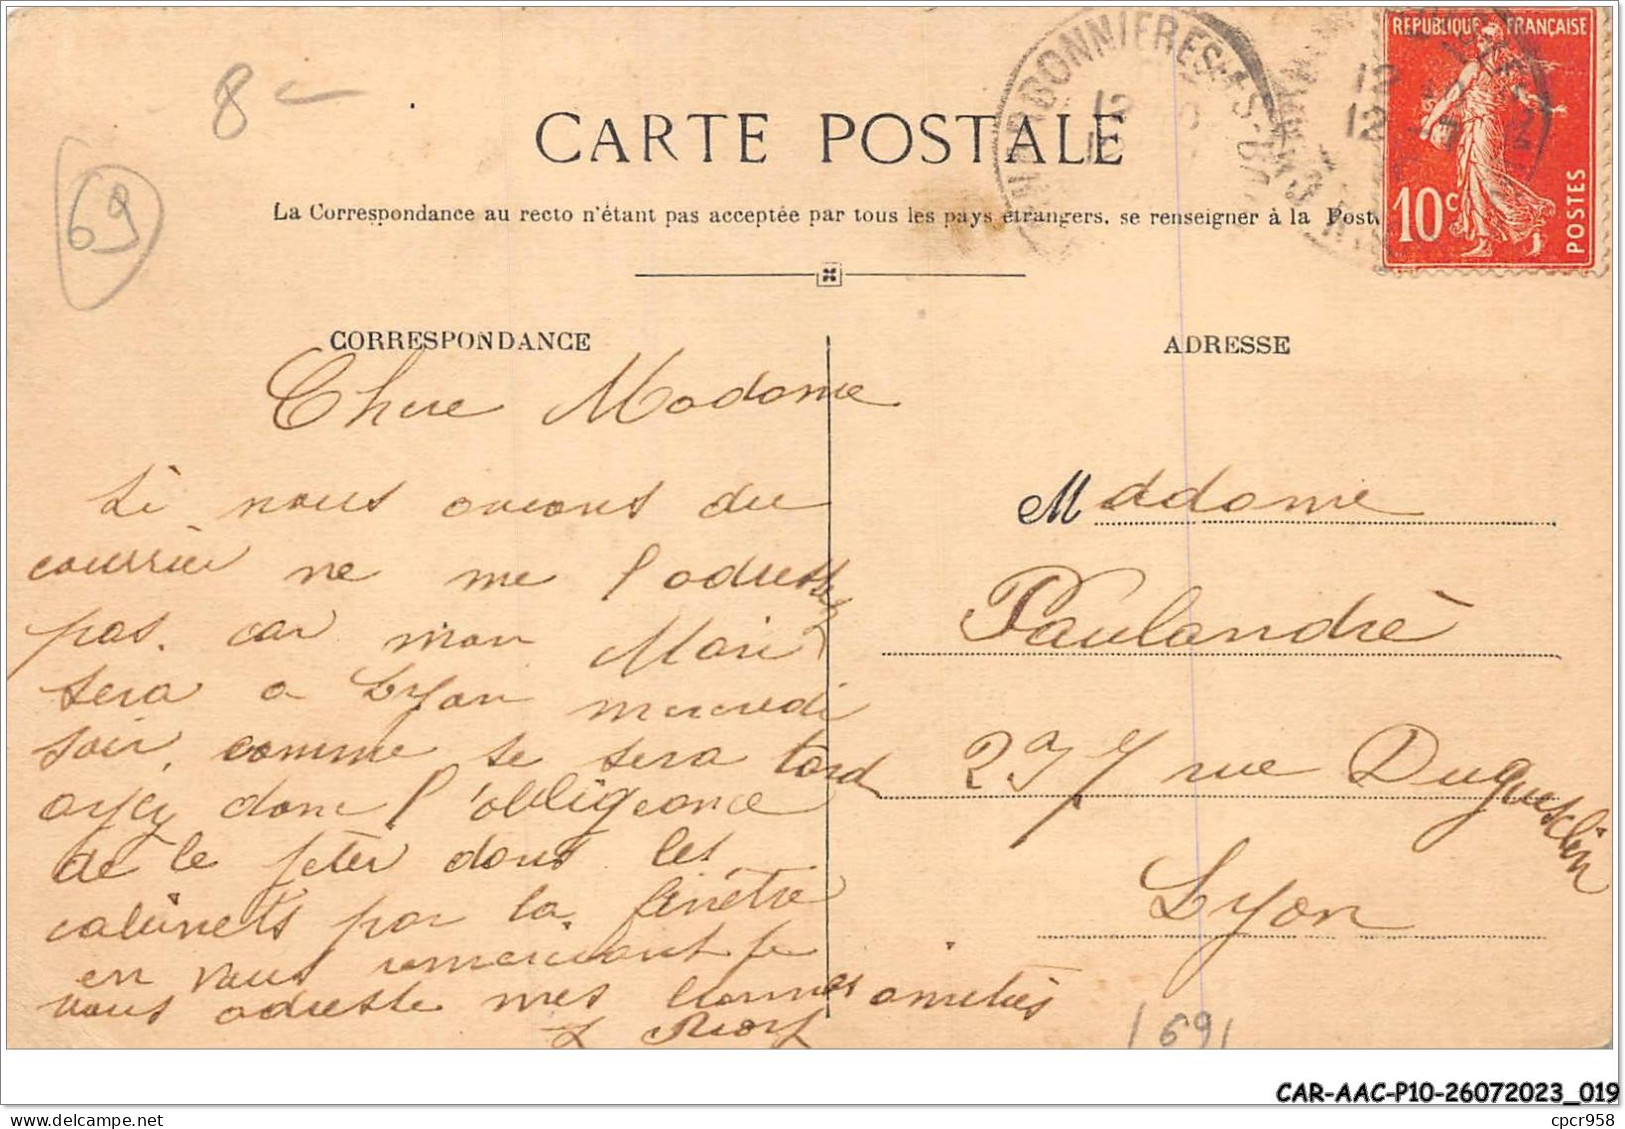 8 -
69
CARTE POSTALE
La Correspondance au recto n'étant pas acceptée par tous les pays étrangers, se renseigner à la Poste
REPUBLIQUE FRANÇAISE
10c
POSTES
CHARBONNIERES-LES-B
12
12 -7
CORRESPONDANCE
ADRESSE
Chere Madame
Si nous avions du
courrier ne me l'adressez
pas. car mon Mari
sera a Lyon mercredi
soir, comme se sera tard
ayez donc l'obligeance
de le jèter dans les
cabinets par la finètre
en vous remerciant je
vous adresse mes bonnes amitiès
Madame
Paulandrè
237 rue Duguesclin
Lyon
69
CAR-AAC-P10-26072023_019
cpcr958